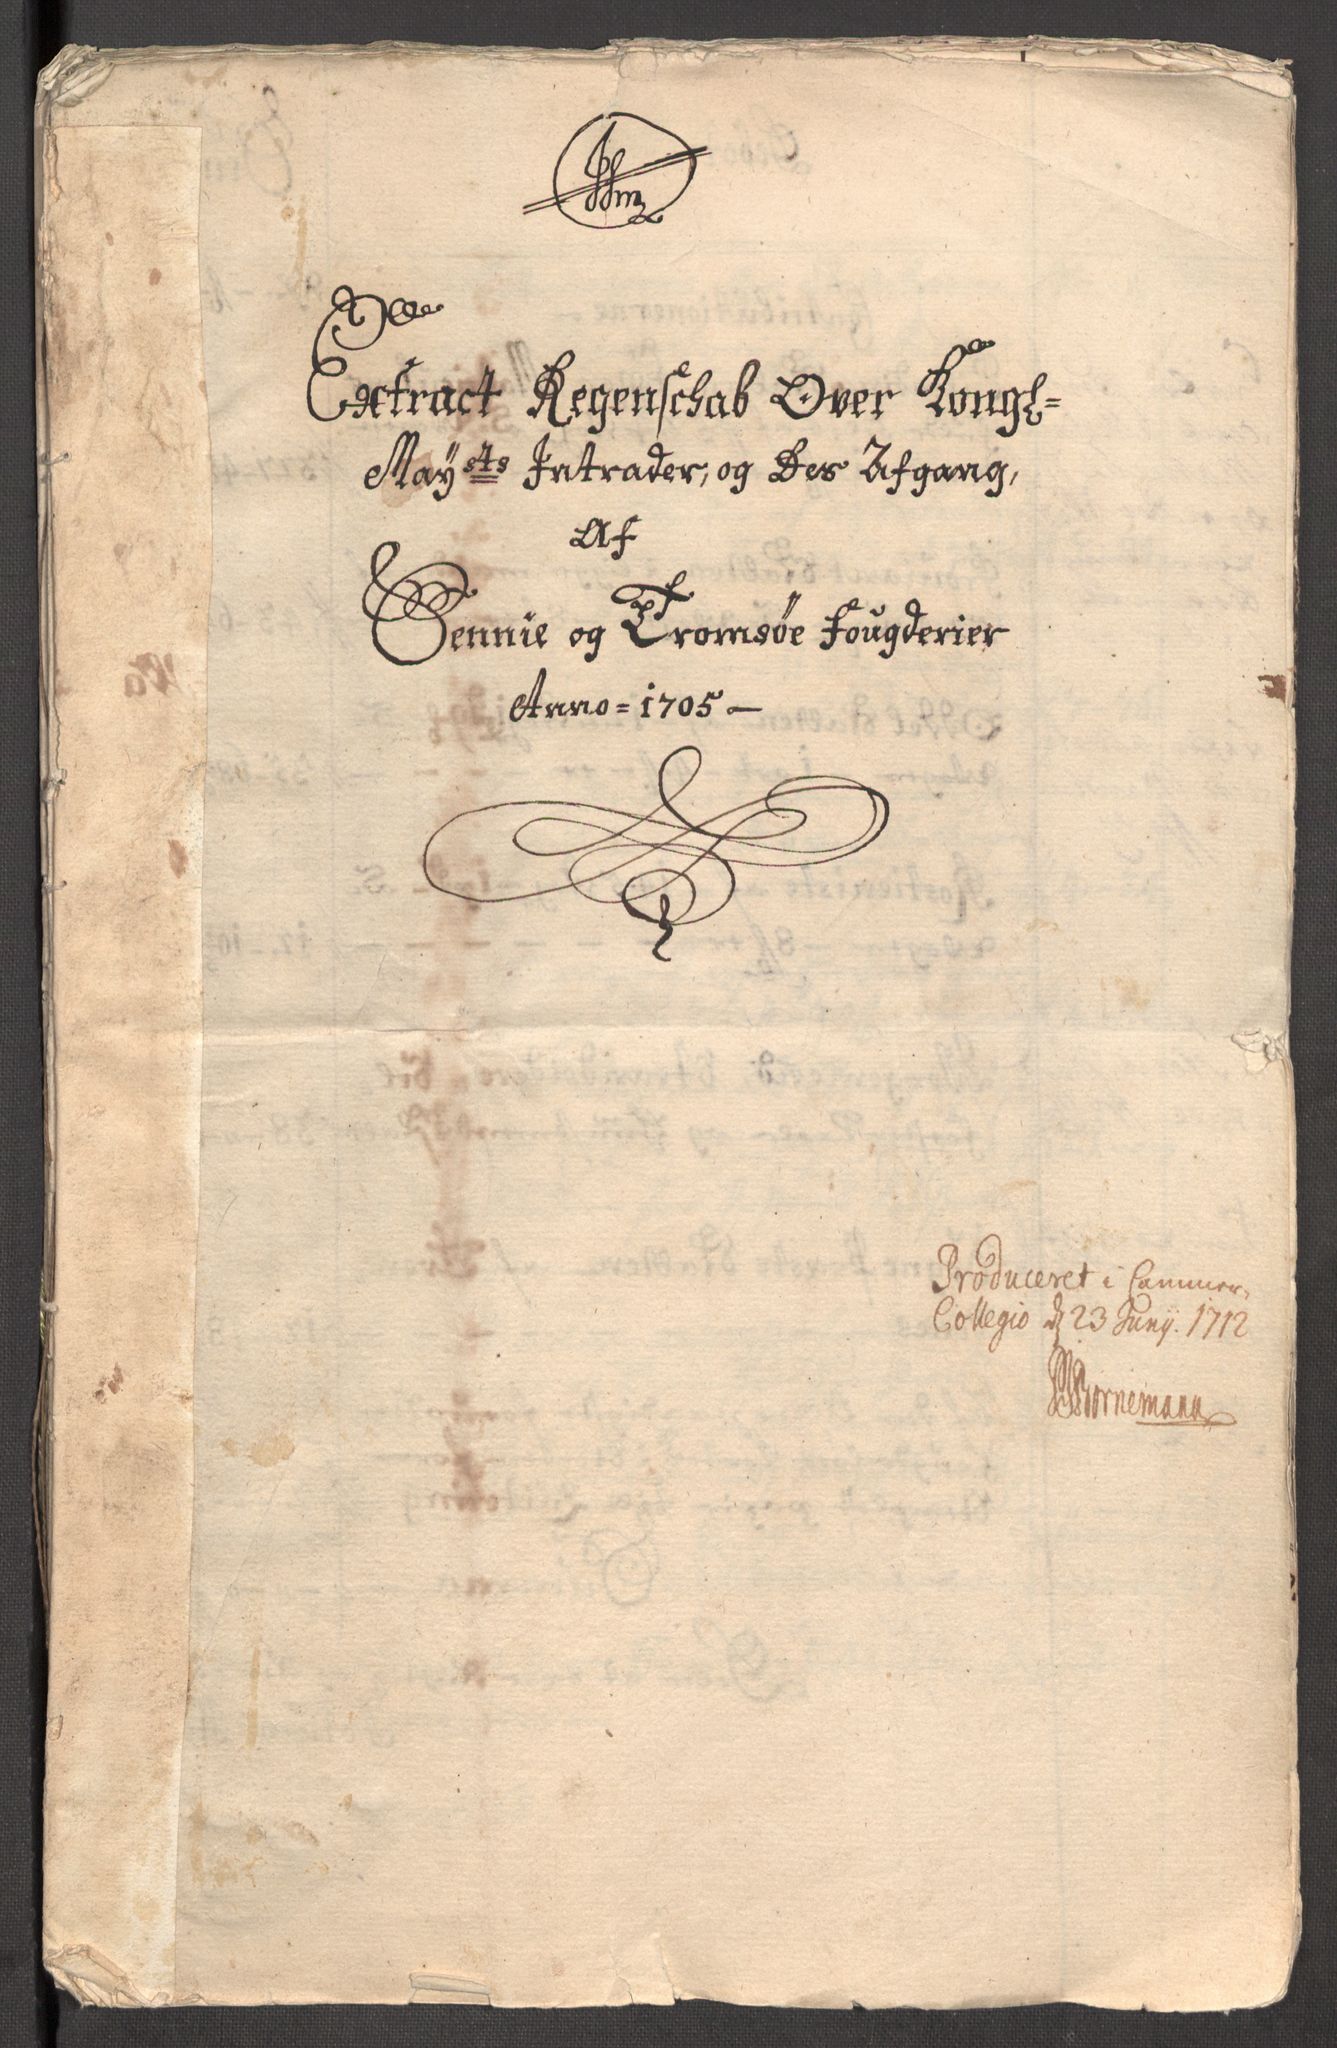 Extract Regenschab Over Kongl=
Mayſts Intrader, og Des Afgang,
Af
Sennie og Tromsøe Fougderier
Anno = 1705 —
Produceret i Cammer,
Collegio d 23 Junij. 1712
Bornemann